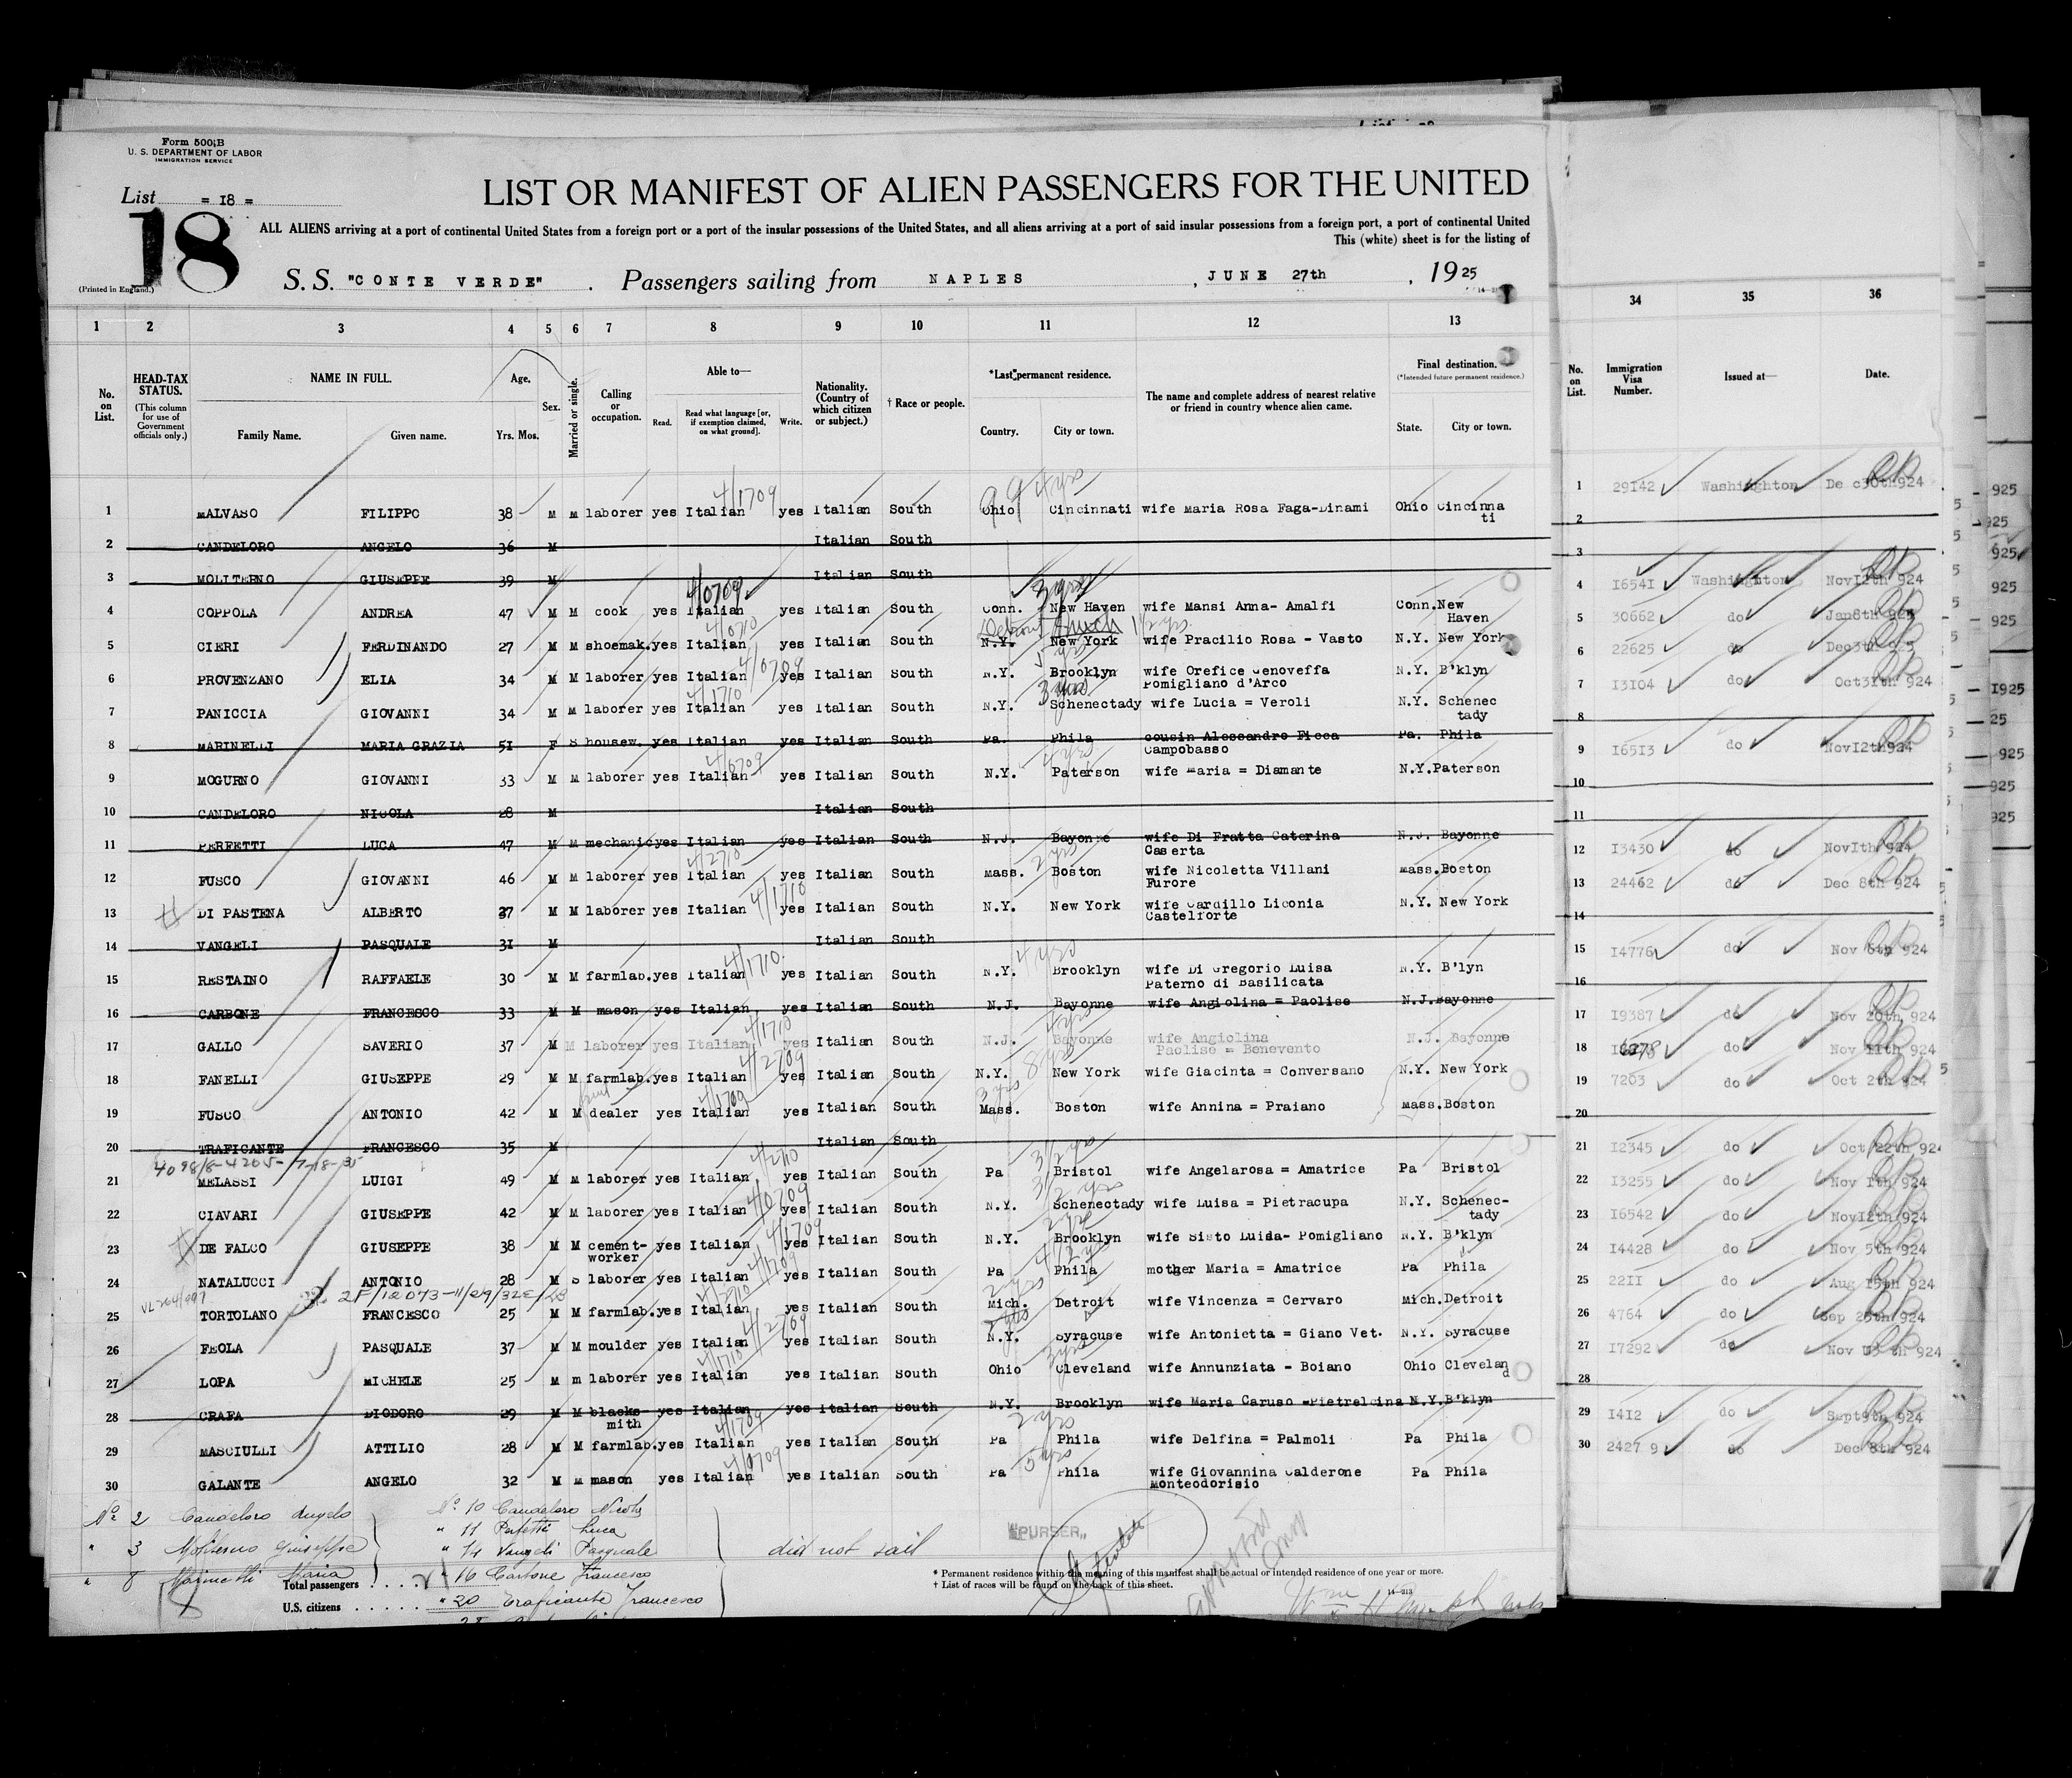 Form 500 B
U. S. DEPARTMENT OF LABOR
IMMIGRATION SERVICE
List = 18 =
18
(Printed in England.)
LIST OR MANIFEST OF ALIEN PASSENGERS FOR THE UNITED
ALL ALIENS arriving at a port of continental United States from a foreign port or a port of the insular possessions of the United States, and all aliens arriving at a port of said insular possessions from a foreign port, a port of continental United
This (white) sheet is for the listing of
S. S. "CONTE VERDE" . Passengers sailing from NAPLES , JUNE 27th , 1925
1 2 3 4 5 6 7 8 9 10 11 12 13 34 35 36
No. on List.
HEAD-TAX STATUS.
(This column for use of Government officials only.)
NAME IN FULL.
Family Name. Given name.
Age.
Yrs. Mos.
Sex.
Married or single.
Calling or occupation.
Able to—
Read. Read what language [or, if exemption claimed, on what ground]. Write.
Nationality. (Country of which citizen or subject.)
† Race or people.
*Last permanent residence.
Country. City or town.
The name and complete address of nearest relative or friend in country whence alien came.
Final destination.
(*Intended future permanent residence.)
State. City or town.
No. on List.
Immigration Visa Number.
Issued at—
Date.
1 MALVASO FILIPPO 38 M M laborer yes Italian 4/1709 yes Italian South Ohio Cincinnati 4 yrs wife Maria Rosa Faga-Dinami Ohio Cincinnati 1 29142 Washinghton Dec30th924
2 CANDELORO ANGELO 36 M Italian South 2
3 MOLITERNO GIUSEPPE 39 M Italian South 3
4 COPPOLA ANDREA 47 M M cook yes Italian 4/0709 yes Italian South Conn. New Haven 3 yrs wife Mansi Anna- Amalfi Conn. New Haven 4 16541 Washinghton Nov12th 924
5 CIERI FERDINANDO 27 M M shoemak. yes Italian 4/0710 yes Italian South N.Y. New York Detroit Mich 1 1/2 yrs. wife Pracilio Rosa - Vasto N.Y. New York 5 30662 do Jan8th 925
6 PROVENZANO ELIA 34 M M laborer yes Italian 4/0709 yes Italian South N.Y. Brooklyn 5 yrs wife Orefice Genoveffa Pomigliano d'Arco N.Y. B'klyn 6 22625 do Dec3th 925
7 PANICCIA GIOVANNI 34 M M laborer yes Italian 4/1710 yes Italian South N.Y. Schenectady 3 yrs wife Lucia = Veroli N.Y. Schenectady 7 13104 do Oct31th 924
8 MARINELLI MARIA GRAZIA 51 F S housew. yes Italian yes Italian South Pa. Phila cousin Alessandro Ficca Campobasso Pa. Phila 8
9 MOGURNO GIOVANNI 33 M M laborer yes Italian 4/0709 yes Italian South N.Y. Paterson 4 yrs wife Maria = Diamante N.Y. Paterson 9 16513 do Nov12th924
10 CANDELORO NICOLA 28 M Italian South 10
11 PERFETTI LUCA 47 M M mechanic yes Italian yes Italian South N.J. Bayonne wife Di Fratta Caterina Caserta N.J. Bayonne 11
12 FUSCO GIOVANNI 46 M M laborer yes Italian 4/2710 yes Italian South Mass. Boston 2 yrs wife Nicoletta Villani Furore Mass. Boston 12 13430 do Nov1th 924
13 # DI PASTENA ALBERTO 37 M M laborer yes Italian 4/1710 yes Italian South N.Y. New York wife Cardillo Liconia Castelforte N.Y. New York 13 24462 do Dec 8th 924
14 VANGELI PASQUALE 31 M Italian South 14
15 RESTAINO RAFFAELE 30 M M farmlab. yes Italian 4/1710 yes Italian South N.Y. Brooklyn 4 yrs wife Di Gregorio Luisa Paterno di Basilicata N.Y. B'lyn 15 14776 do Nov 6th 924
16 CARBONE FRANCESCO 33 M M mason yes Italian yes Italian South N.J. Bayonne wife Angiolina = Paolise N.J. Bayonne 16
17 GALLO SAVERIO 37 M M laborer yes Italian 4/1710 yes Italian South N.J. Bayonne 4 yrs wife Angiolina Paolise = Benevento N.J. Bayonne 17 19387 do Nov 20th 924
18 FANELLI GIUSEPPE 29 M M farmlab. yes Italian 4/2709 yes Italian South N.Y. New York 8 yrs wife Giacinta = Conversano N.Y. New York 18 do Nov 11th 924
19 FUSCO ANTONIO 42 M M fruit dealer yes Italian 4/1709 yes Italian South Mass. Boston 3 yrs wife Annina = Praiano Mass. Boston 19 7203 do Oct 2th 924
20 TRAFICANTE FRANCESCO 35 M Italian South 20
21 MELASSI LUIGI 49 M M laborer yes Italian 4/2710 yes Italian South Pa Bristol 3 1/2 yrs wife Angelarosa = Amatrice Pa Bristol 21 12345 do Oct 22th 924
22 CIAVARI GIUSEPPE 42 M M laborer yes Italian 4/0709 yes Italian South N.Y. Schenectady 3 1/2 yrs wife Luisa = Pietracupa N.Y. Schenectady 22 13255 do Nov 1th 924
23 # DE FALCO GIUSEPPE 38 M M cement-worker yes Italian 4/1709 yes Italian South N.Y. Brooklyn 2 yrs wife Sisto Luida- Pomigliano N.Y. B'klyn 23 16542 do Nov12th 924
24 NATALUCCI ANTONIO 28 M S laborer yes Italian 4/1709 yes Italian South Pa Phila mother Maria = Amatrice Pa Phila 24 14428 do Nov 5th 924
25 TORTOLANO FRANCESCO 25 M M farmlab. yes Italian 4/2710 yes Italian South Mich. Detroit 2 yrs wife Vincenza = Cervaro Mich. Detroit 25 2211 do Aug 15th 924
26 FEOLA PASQUALE 37 M M moulder yes Italian 4/2709 yes Italian South N.Y. Syracuse 2 yrs wife Antonietta = Giano Vet. N.Y. Syracuse 26 4764 do Sep 25th 924
27 LOPA MICHELE 25 M m laborer yes Italian 4/1710 yes Italian South Ohio Cleveland 3 yrs wife Annunziata - Boiano Ohio Cleveland 27 17292 do Nov th 924
28 CRAFA DIODORO 29 M M blacksmith yes Italian yes Italian South N.Y. Brooklyn wife Maria Caruso =Pietrelcina N.Y. B'klyn 28
29 MASCIULLI ATTILIO 28 M M farmlab. yes Italian 4/1709 yes Italian South Pa Phila 2 yrs wife Delfina = Palmoli Pa Phila 29 1412 do Sept9th 924
30 GALANTE ANGELO 32 M M mason yes Italian 4/0709 yes Italian South Pa Phila 5 yrs wife Giovannina Calderone Monteodorisio Pa Phila 30 24279 do Dec 8th 924
No 2 Candeloro Angelo No 10 Candeloro Nicola
" 3 Moliterno Giuseppe " 11 Perfetti Luca
" 14 Vangeli Pasquale did not sail
" 8 Marinelli Maria " 16 Carbone Francesco
" 20 Traficante Francesco
Total passengers
U.S. citizens
"PURSER"
* Permanent residence within the meaning of this manifest shall be actual or intended residence of one year or more.
† List of races will be found on the back of this sheet.
14—213